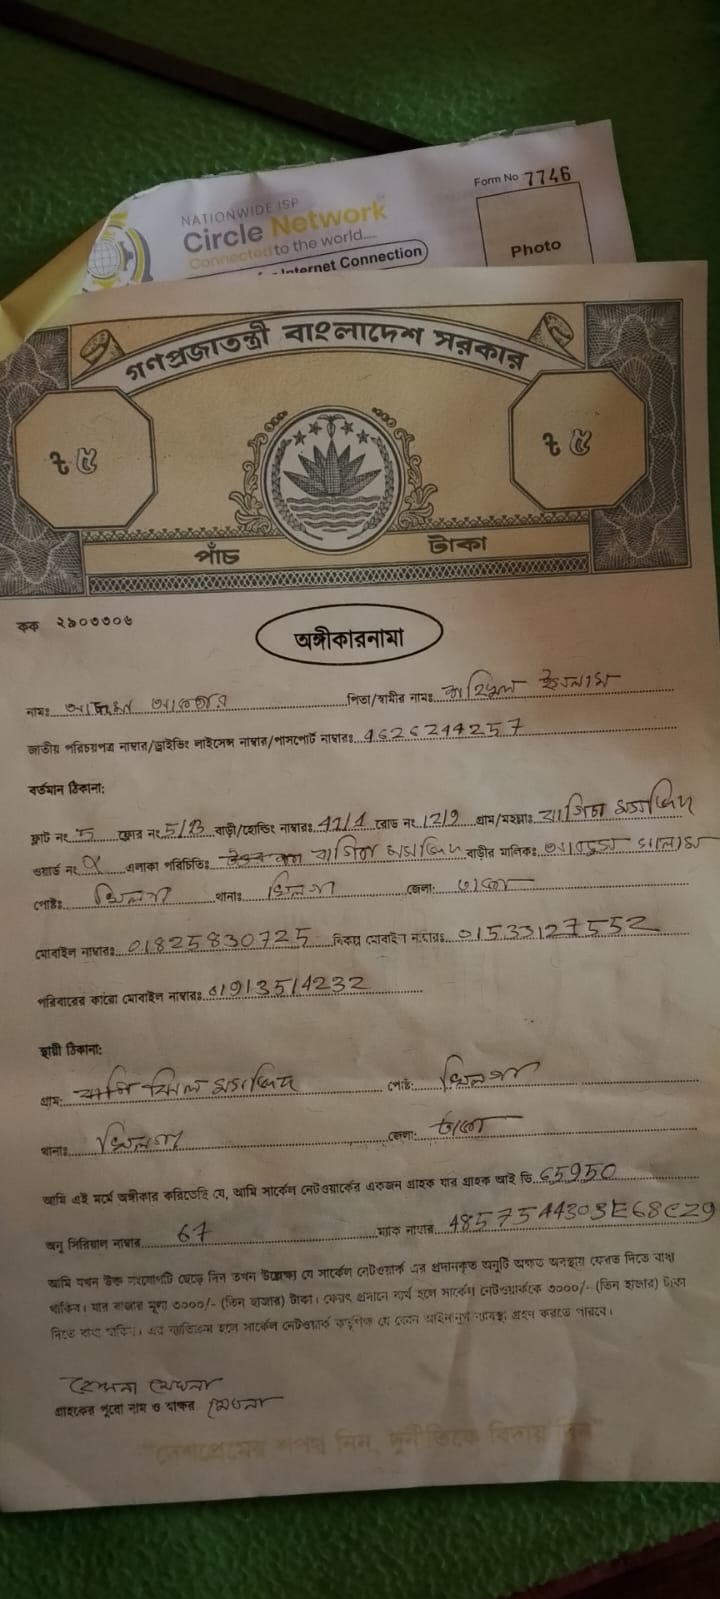 Form No 7746
NATIONWIDE ISP
Circle Network
Connected to the world....
Internet Connection
Photo
গণপ্রজাতন্ত্রী বাংলাদেশ সরকার
৳ ৫
৳ ৫
পাঁচ টাকা
কক ২৯০৩৩০৬
অঙ্গীকারনামা
নামঃ আক্তার পিতা/স্বামীর নামঃ ইসলাম
জাতীয় পরিচয়পত্র নাম্বার/ড্রাইভিং লাইসেন্স নাম্বার/পাসপোর্ট নাম্বারঃ 4626244257
বর্তমান ঠিকানা:
ফ্লাট নং 5 ফ্লোর নং 5/B বাড়ী/হোল্ডিং নাম্বারঃ 41/1 রোড নং 12/9 গ্রাম/মহল্লাঃ মসজিদ
ওয়ার্ড নং এলাকা পরিচিতিঃ মসজিদ বাড়ীর মালিকঃ
পোষ্টঃ খিলগাঁ থানাঃ খিলগাঁ জেলা: ঢাকা
মোবাইল নাম্বারঃ 01825830725 বিকল্প মোবাইল নাম্বারঃ 01533127552
পরিবারের কারো মোবাইল নাম্বারঃ 01913514232
স্থায়ী ঠিকানা:
গ্রাম: মসজিদ পোষ্ট: খিলগাঁ
থানাঃ খিলগাঁ জেলা: ঢাকা
আমি এই মর্মে অঙ্গীকার করিতেছি যে, আমি সার্কেল নেটওয়ার্কের একজন গ্রাহক যার গ্রাহক আই ডি 65950
অনু সিরিয়াল নাম্বার 67 ম্যাক নাম্বার 48575444303E68C29
আমি যখন উক্ত সংযোগটি ছেড়ে দিব তখন উল্লেখ্য যে সার্কেল নেটওয়ার্ক এর প্রদানকৃত অনুটি অক্ষত অবস্থায় ফেরত দিতে বাধ্য
থাকিব। যার বাজার মূল্য ৩০০০/- (তিন হাজার) টাকা। ফেরৎ প্রদানে ব্যর্থ হলে সার্কেল নেটওয়ার্ককে ৩০০০/- (তিন হাজার) টাকা
দিতে বাধ্য থাকিব। এর ব্যতিক্রম হলে সার্কেল নেটওয়ার্ক কর্তৃপক্ষ যে কোন আইনানুগ ব্যবস্থা গ্রহন করতে পারবে।
মেঘনা
গ্রাহকের পুরো নাম ও স্বাক্ষর মেঘনা
"দেশপ্রেমের শপথ নিন, দুর্নীতিকে বিদায় দিন"